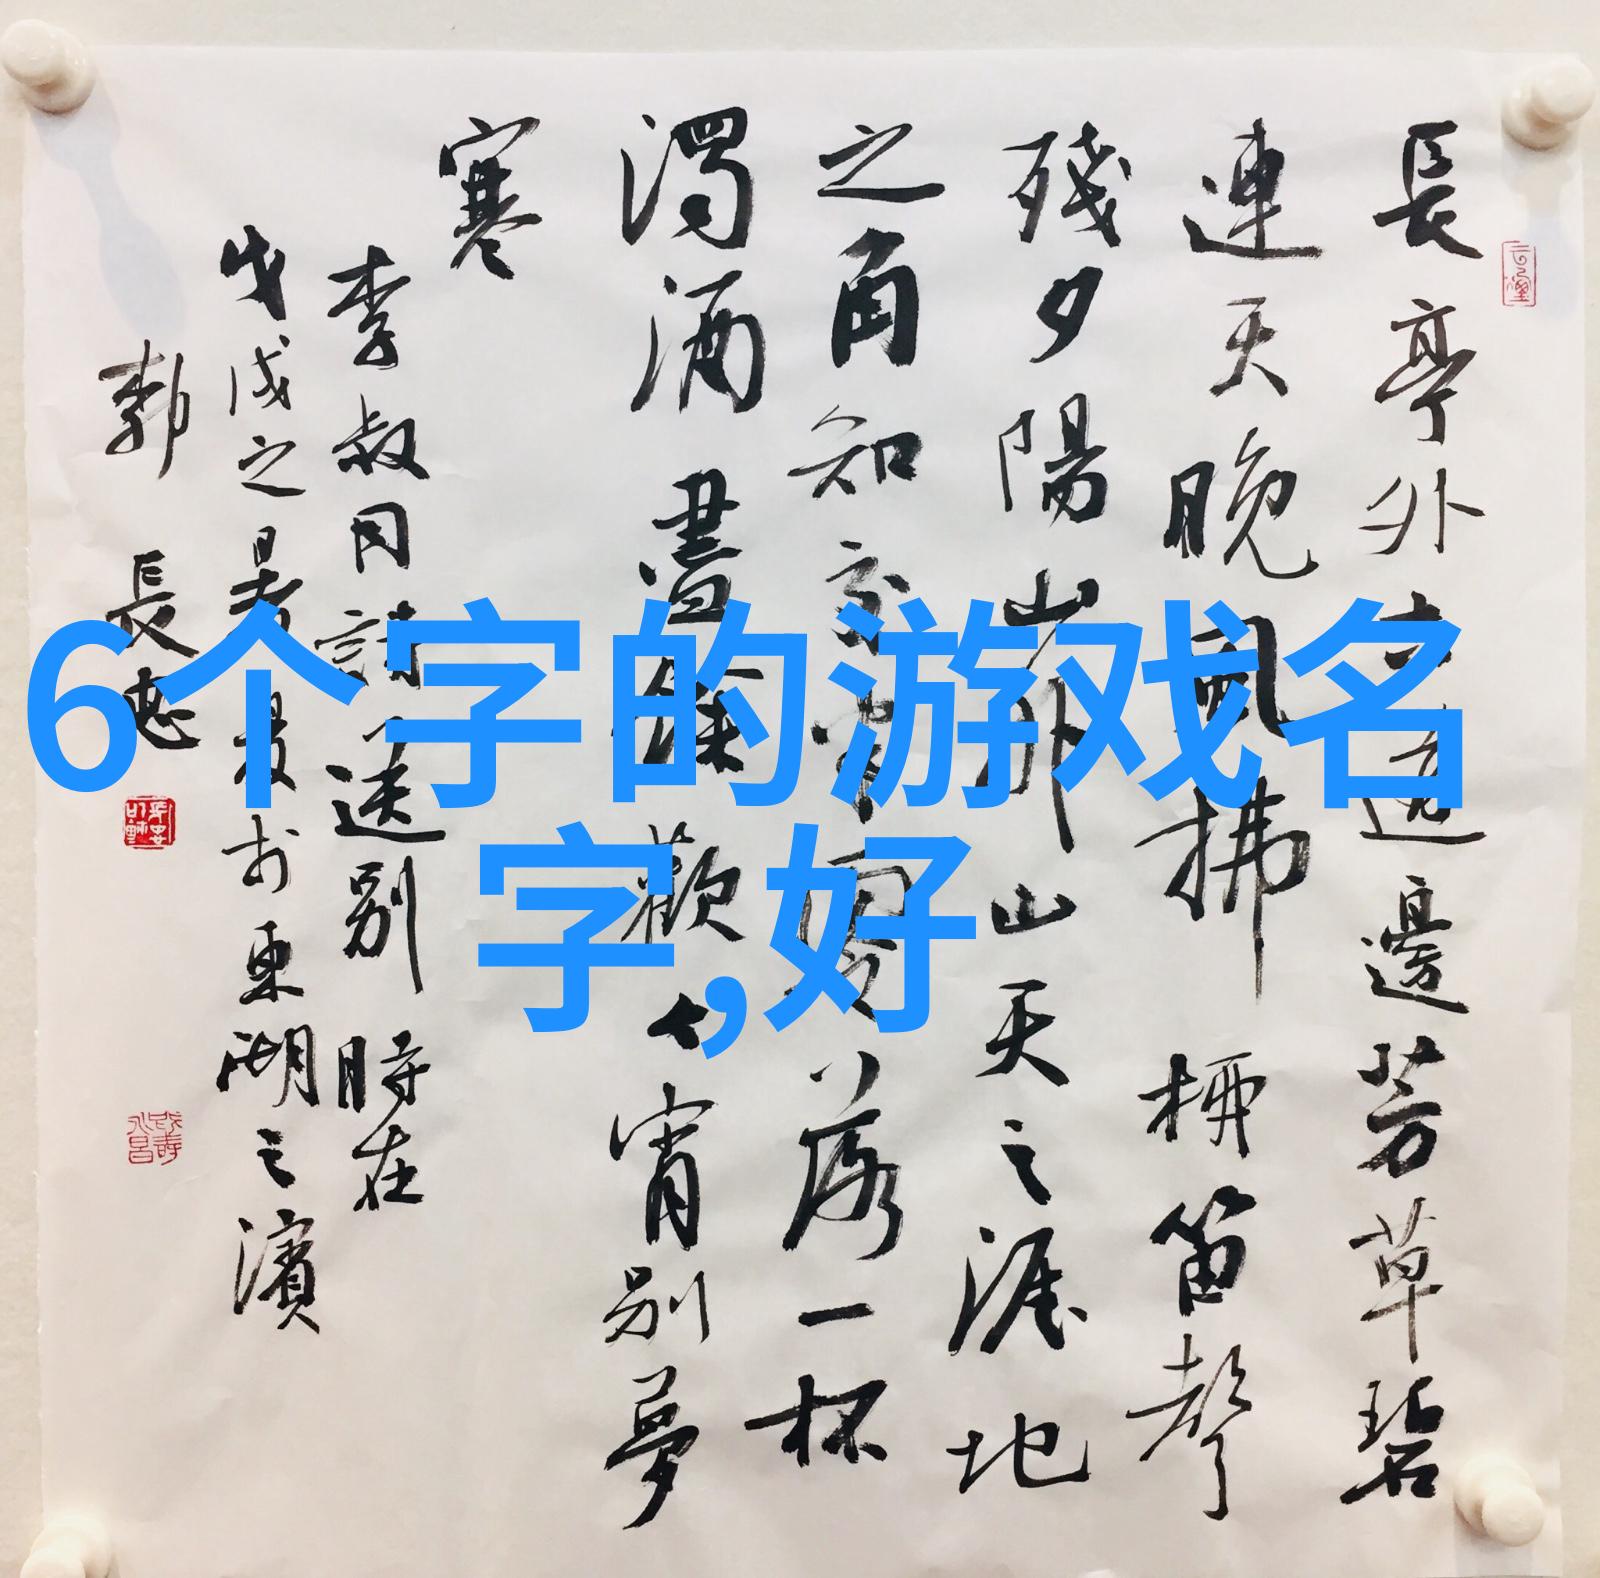 6个字的游戏名
字,好
長亭外古道邊芳草碧
連天晚風拂柳笛聲
殘夕陽山外山天之涯地
之角知交半零落一杯
濁酒盡餘歡今宵別夢
寒
李叔同詩送別 時在
戊戌之暑於東湖之濱
長忠